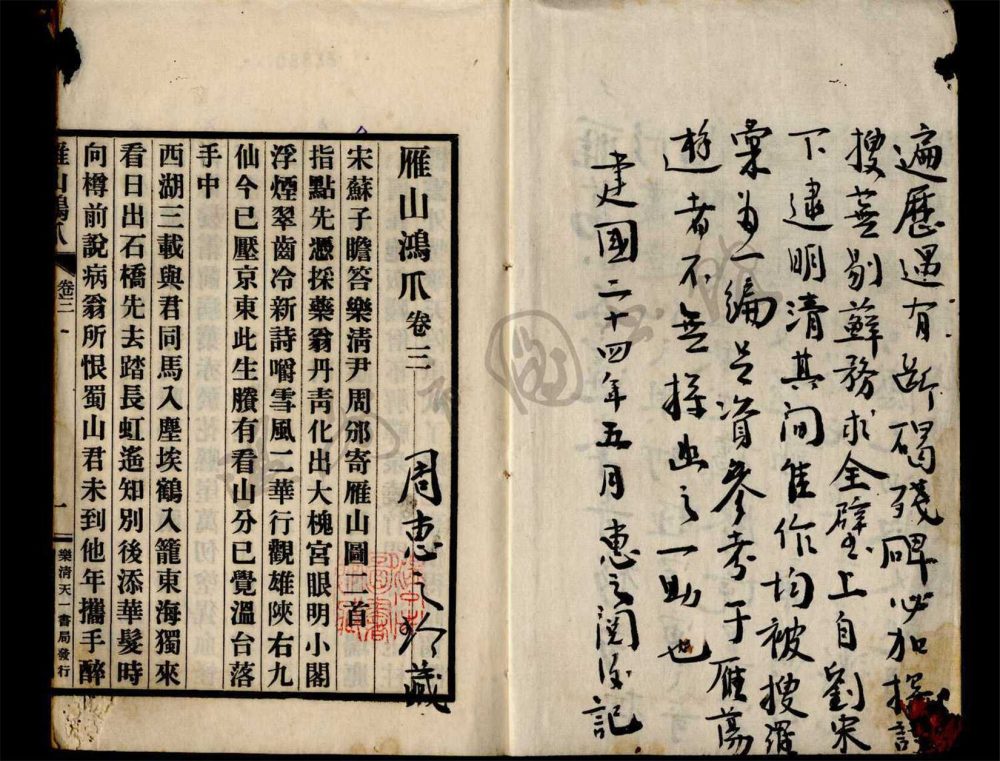 遍歷遇有斷碣殘碑必加摸
搜蕪剔蘚務求全璧上自劉宋
下逮明清其間隹作均被搜羅
彙為一編足資參考于雁蕩
遊者不無探幽之一助也
建國二十四年五月惠之閱後記
雁山鴻爪卷三
周惠之珍藏
宋蘇子瞻答樂清尹周邠寄雁山圖二首
指點先憑採藥翁丹青化出大槐宮眼明小閣
浮煙翠齒冷新詩嚼雪風二華行觀雄陝右九
仙今已壓京東此生賸有看山分已覺溫台落
手中
西湖三載與君同馬入塵埃鶴入籠東海獨來
看日出石橋先去踏長虹遙知別後添華髮時
向樽前說病翁所恨蜀山君未到他年攜手醉
雁山鴻爪
卷三
一
樂清天一書局發行